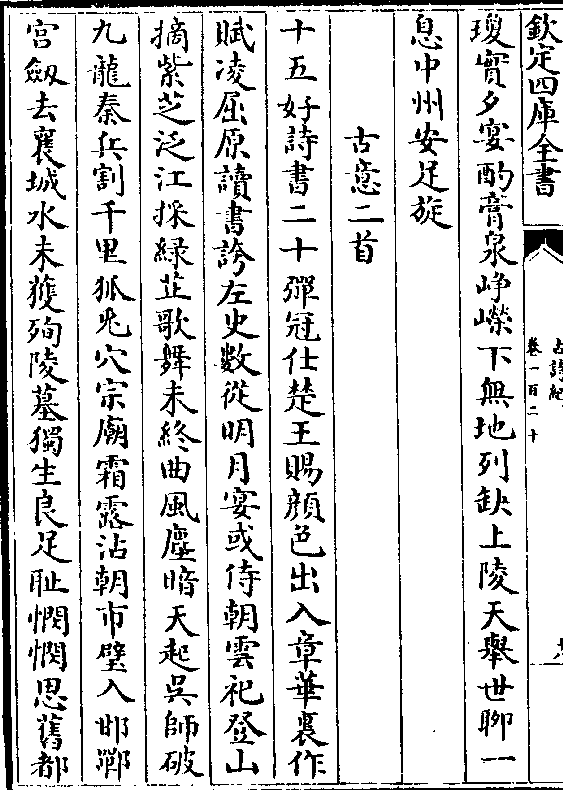 欽定四庫全書
古詩紀
卷一百二十
瓊實夕宴酌膏泉崢嶸下無地列缺上陵天舉世聊一
息中州安足旋
古意二首
十五好詩書二十彈冠仕楚王賜顔色出入章華裏作
賦凌屈原讀書誇左史數從明月宴或侍朝雲祀登山
摘紫芝泛江採緑芷歌舞未終曲風塵暗天起吳師破
九龍秦兵割千里狐兎穴宗廟霜露沾朝市璧入邯鄲
宫劔去襄城水未獲殉陵墓獨生良足耻憫憫思舊都